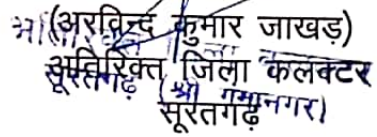 (अरविन्द कुमार जाखड़)
अतिरिक्त जिला कलक्टर
सूरतगढ़ (श्री गंगानगर)
सूरतगढ़